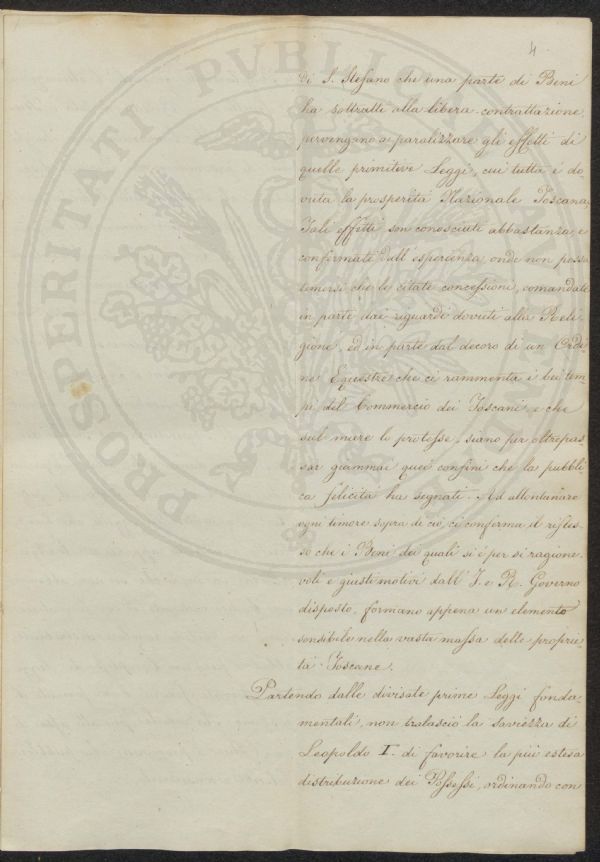 4.
di S. Stefano che una parte di Beni
ha sottratti alla libera contrattazione,
pervengano a paralizzare gli effetti di
quelle primitive Leggi, cui tutta è do-
vuta la prosperità Nazionale Toscana.
Tali effetti son conosciuti abbastanza, e
confermati dall'esperienza, onde non possa
temersi che le citate concessioni, comandate
in parte dai riguardi dovuti alla Reli-
gione, ed in parte dal decoro di un Ordi-
ne Equestre che ci rammenta i bei tem-
pi del Commercio dei Toscani, e che
sul mare lo protesse, siano per oltrepas-
sar giammai quei confini che la pubbli-
ca felicità ha segnati. Ad allontanare
ogni timore sopra di ciò, ci conferma il rifles-
so che i Beni dei quali si è per sì ragione-
voli e giusti motivi dall'I. e R. Governo
disposto, formano appena un elemento
sensibile nella vasta massa delle proprie-
tà Toscane.
Partendo dalle divisate prime Leggi fonda-
mentali, non tralasciò la saviezza di
Leopoldo I. di favorire la più estesa
distribuzione dei Possessi, ordinando con
PROSPERITATI PVBLICAE